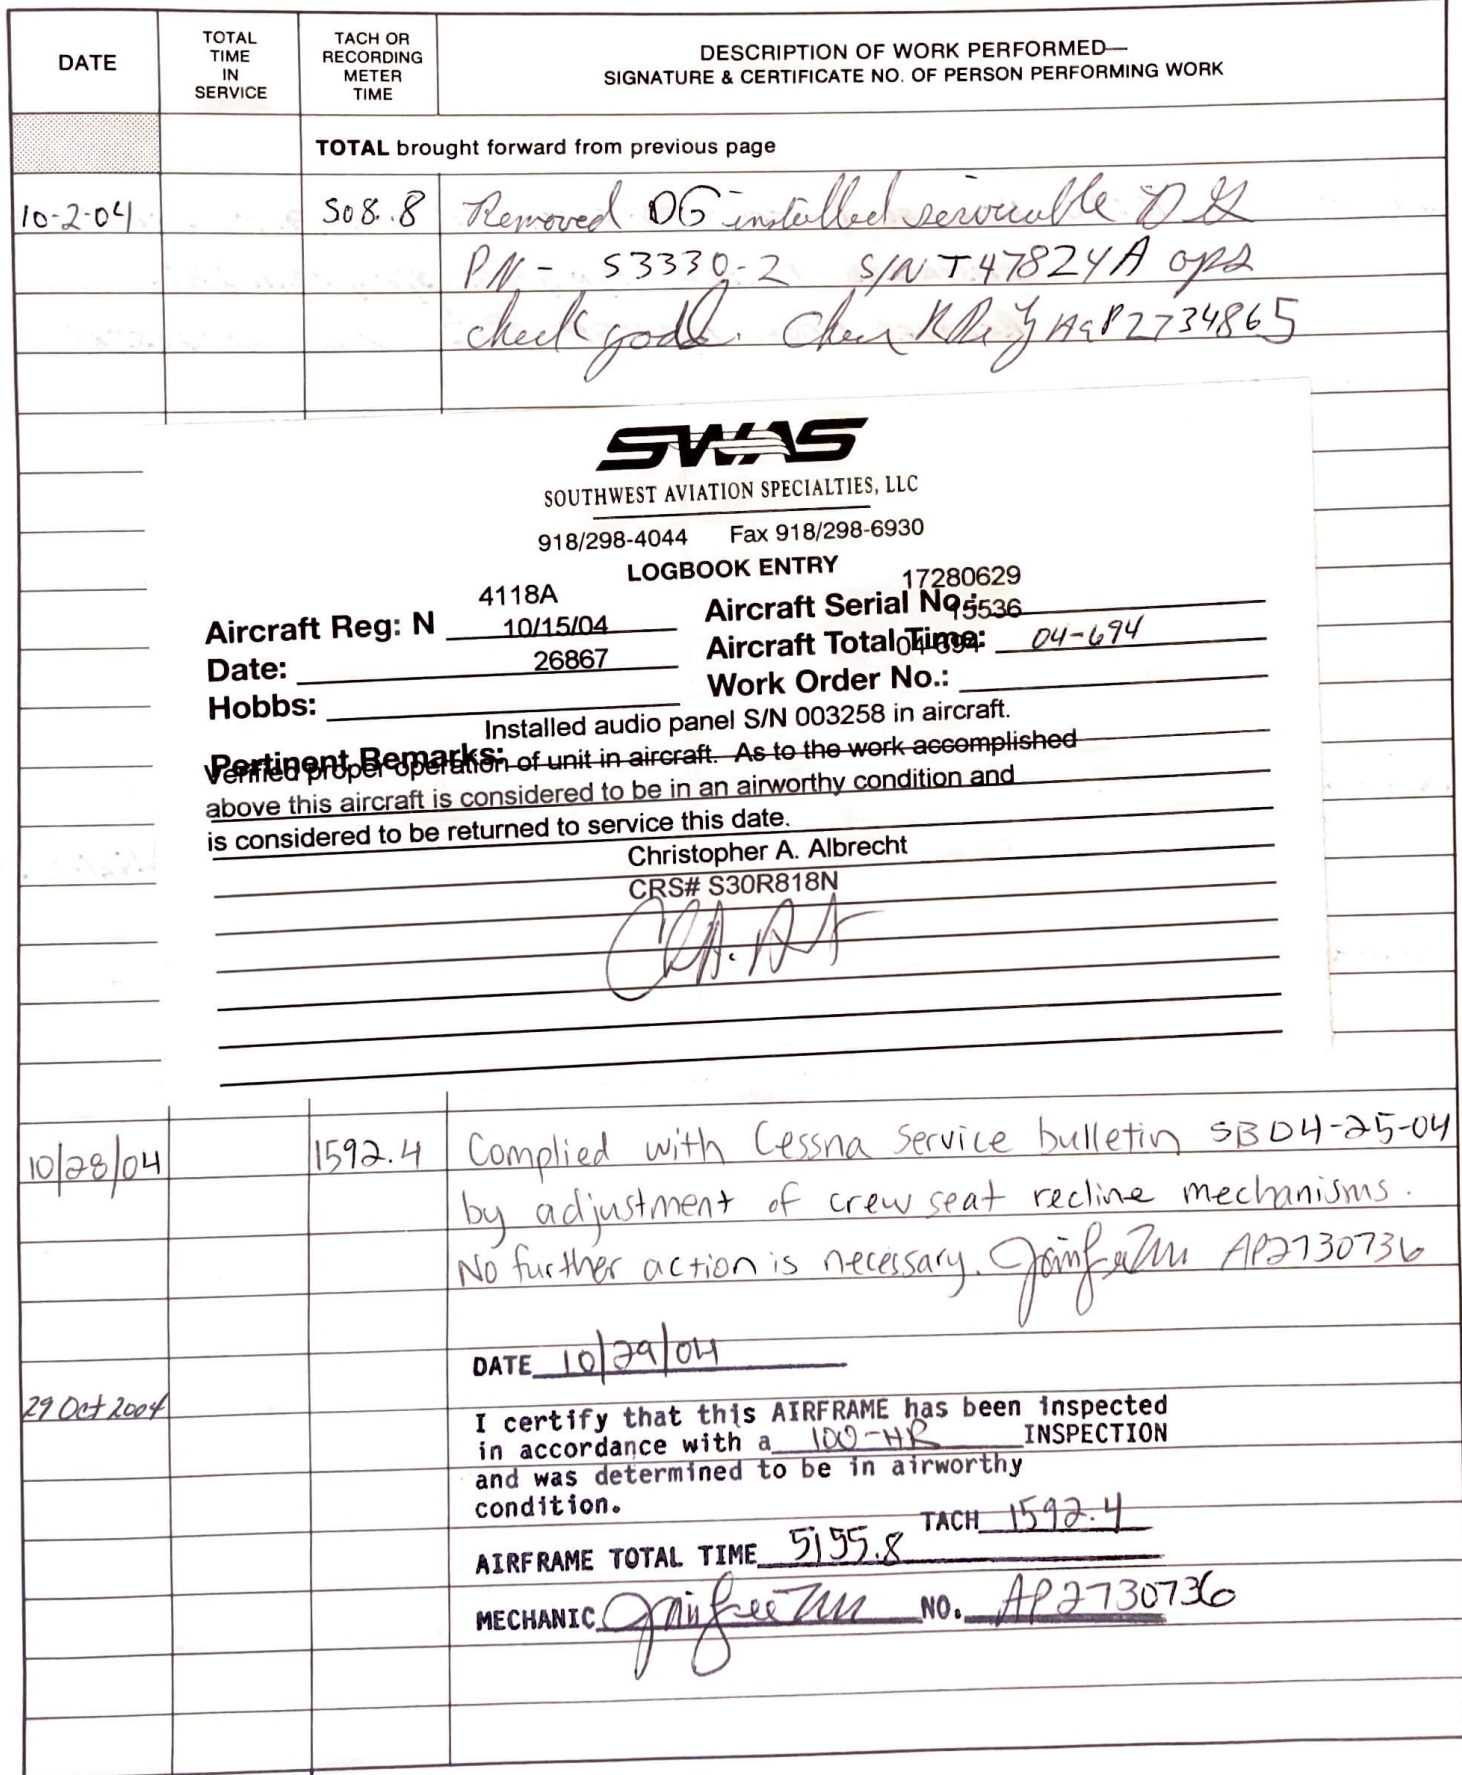 DATE
TOTAL
TIME
IN
SERVICE
TACH OR
RECORDING
METER
TIME
DESCRIPTION OF WORK PERFORMED—
SIGNATURE & CERTIFICATE NO. OF PERSON PERFORMING WORK
TOTAL brought forward from previous page
10-2-04 508.8 Removed DG installed serviceable DG
PN - S3330-2 S/N T47824A ops
check good. A&P 2734865
SWAS
SOUTHWEST AVIATION SPECIALTIES, LLC
918/298-4044 Fax 918/298-6930
LOGBOOK ENTRY
4118A 17280629
Aircraft Reg: N 10/15/04 Aircraft Serial No.: 15536
Date: 26867 Aircraft Total Time: 04-694 04-694
Hobbs: Work Order No.:
Installed audio panel S/N 003258 in aircraft.
Pertinent Remarks:
Verified proper operation of unit in aircraft. As to the work accomplished
above this aircraft is considered to be in an airworthy condition and
is considered to be returned to service this date.
Christopher A. Albrecht
CRS# S30R818N
10/28/04 1592.4 Complied with Cessna Service bulletin SB04-25-04
by adjustment of crew seat recline mechanisms.
No further action is necessary. AP2730736
DATE 10/29/04
29 Oct 2004
I certify that this AIRFRAME has been inspected
in accordance with a 100-HR INSPECTION
and was determined to be in airworthy
condition.
TACH 1592.4
AIRFRAME TOTAL TIME 5155.8
MECHANIC NO. AP2730736